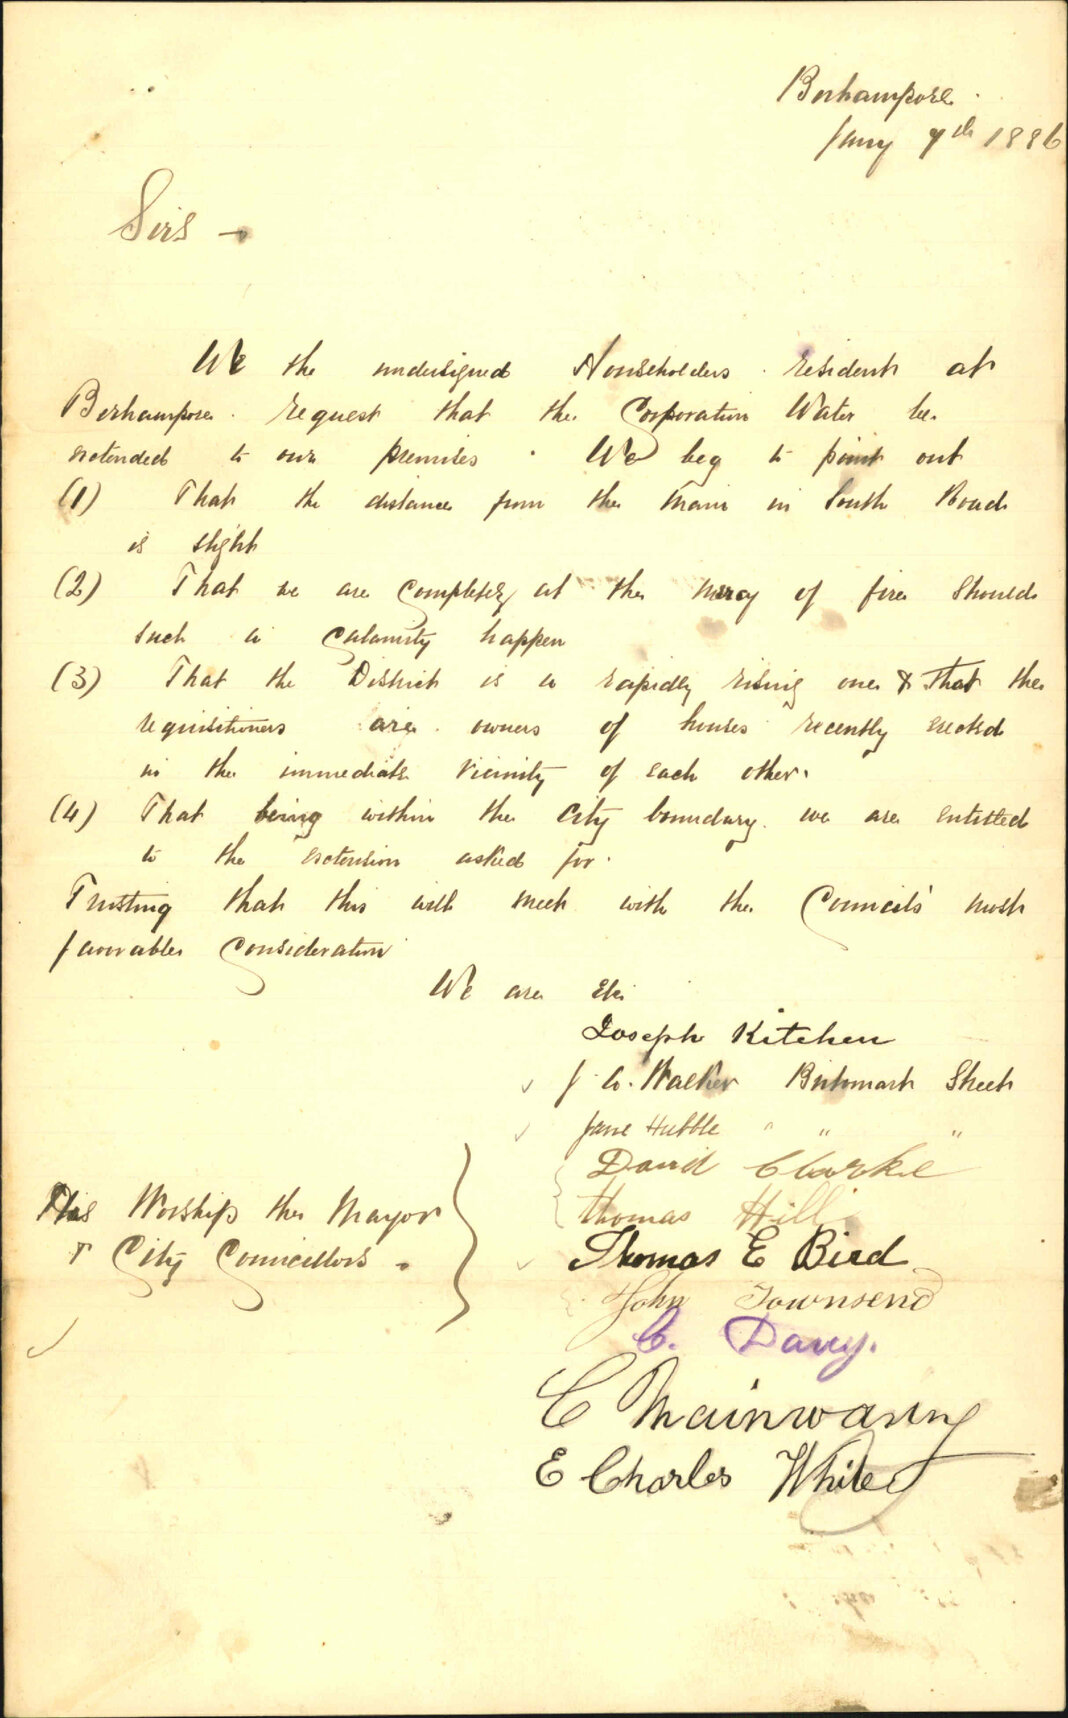 Berhampore.
Jany 7th 1886
Sirs -
We the undersigned Householders resident at
Berhampore request that the Corporation Water be
extended to our premises. We beg to point out
(1) That the distance from the main in South Road
is slight
(2) That we are completely at the mercy of fire should
such a calamity happen
(3) That the District is a rapidly rising one & that the
requisitioners are owners of houses recently erected
in the immediate vicinity of each other.
(4) That being within the City boundary we are entitled
to the extension asked for.
Trusting that this will meet with the Councils' most
favorable consideration
We are Etc
Joseph Kitchen
J. A. Walker Bishmark Street
Jane Hubble " " "
David Clarke
Thomas Hill
His Worship the Mayor
& City Councillors.
Thomas E Bird
John Townsend
C. Davy.
C Mainwaring
E Charles White